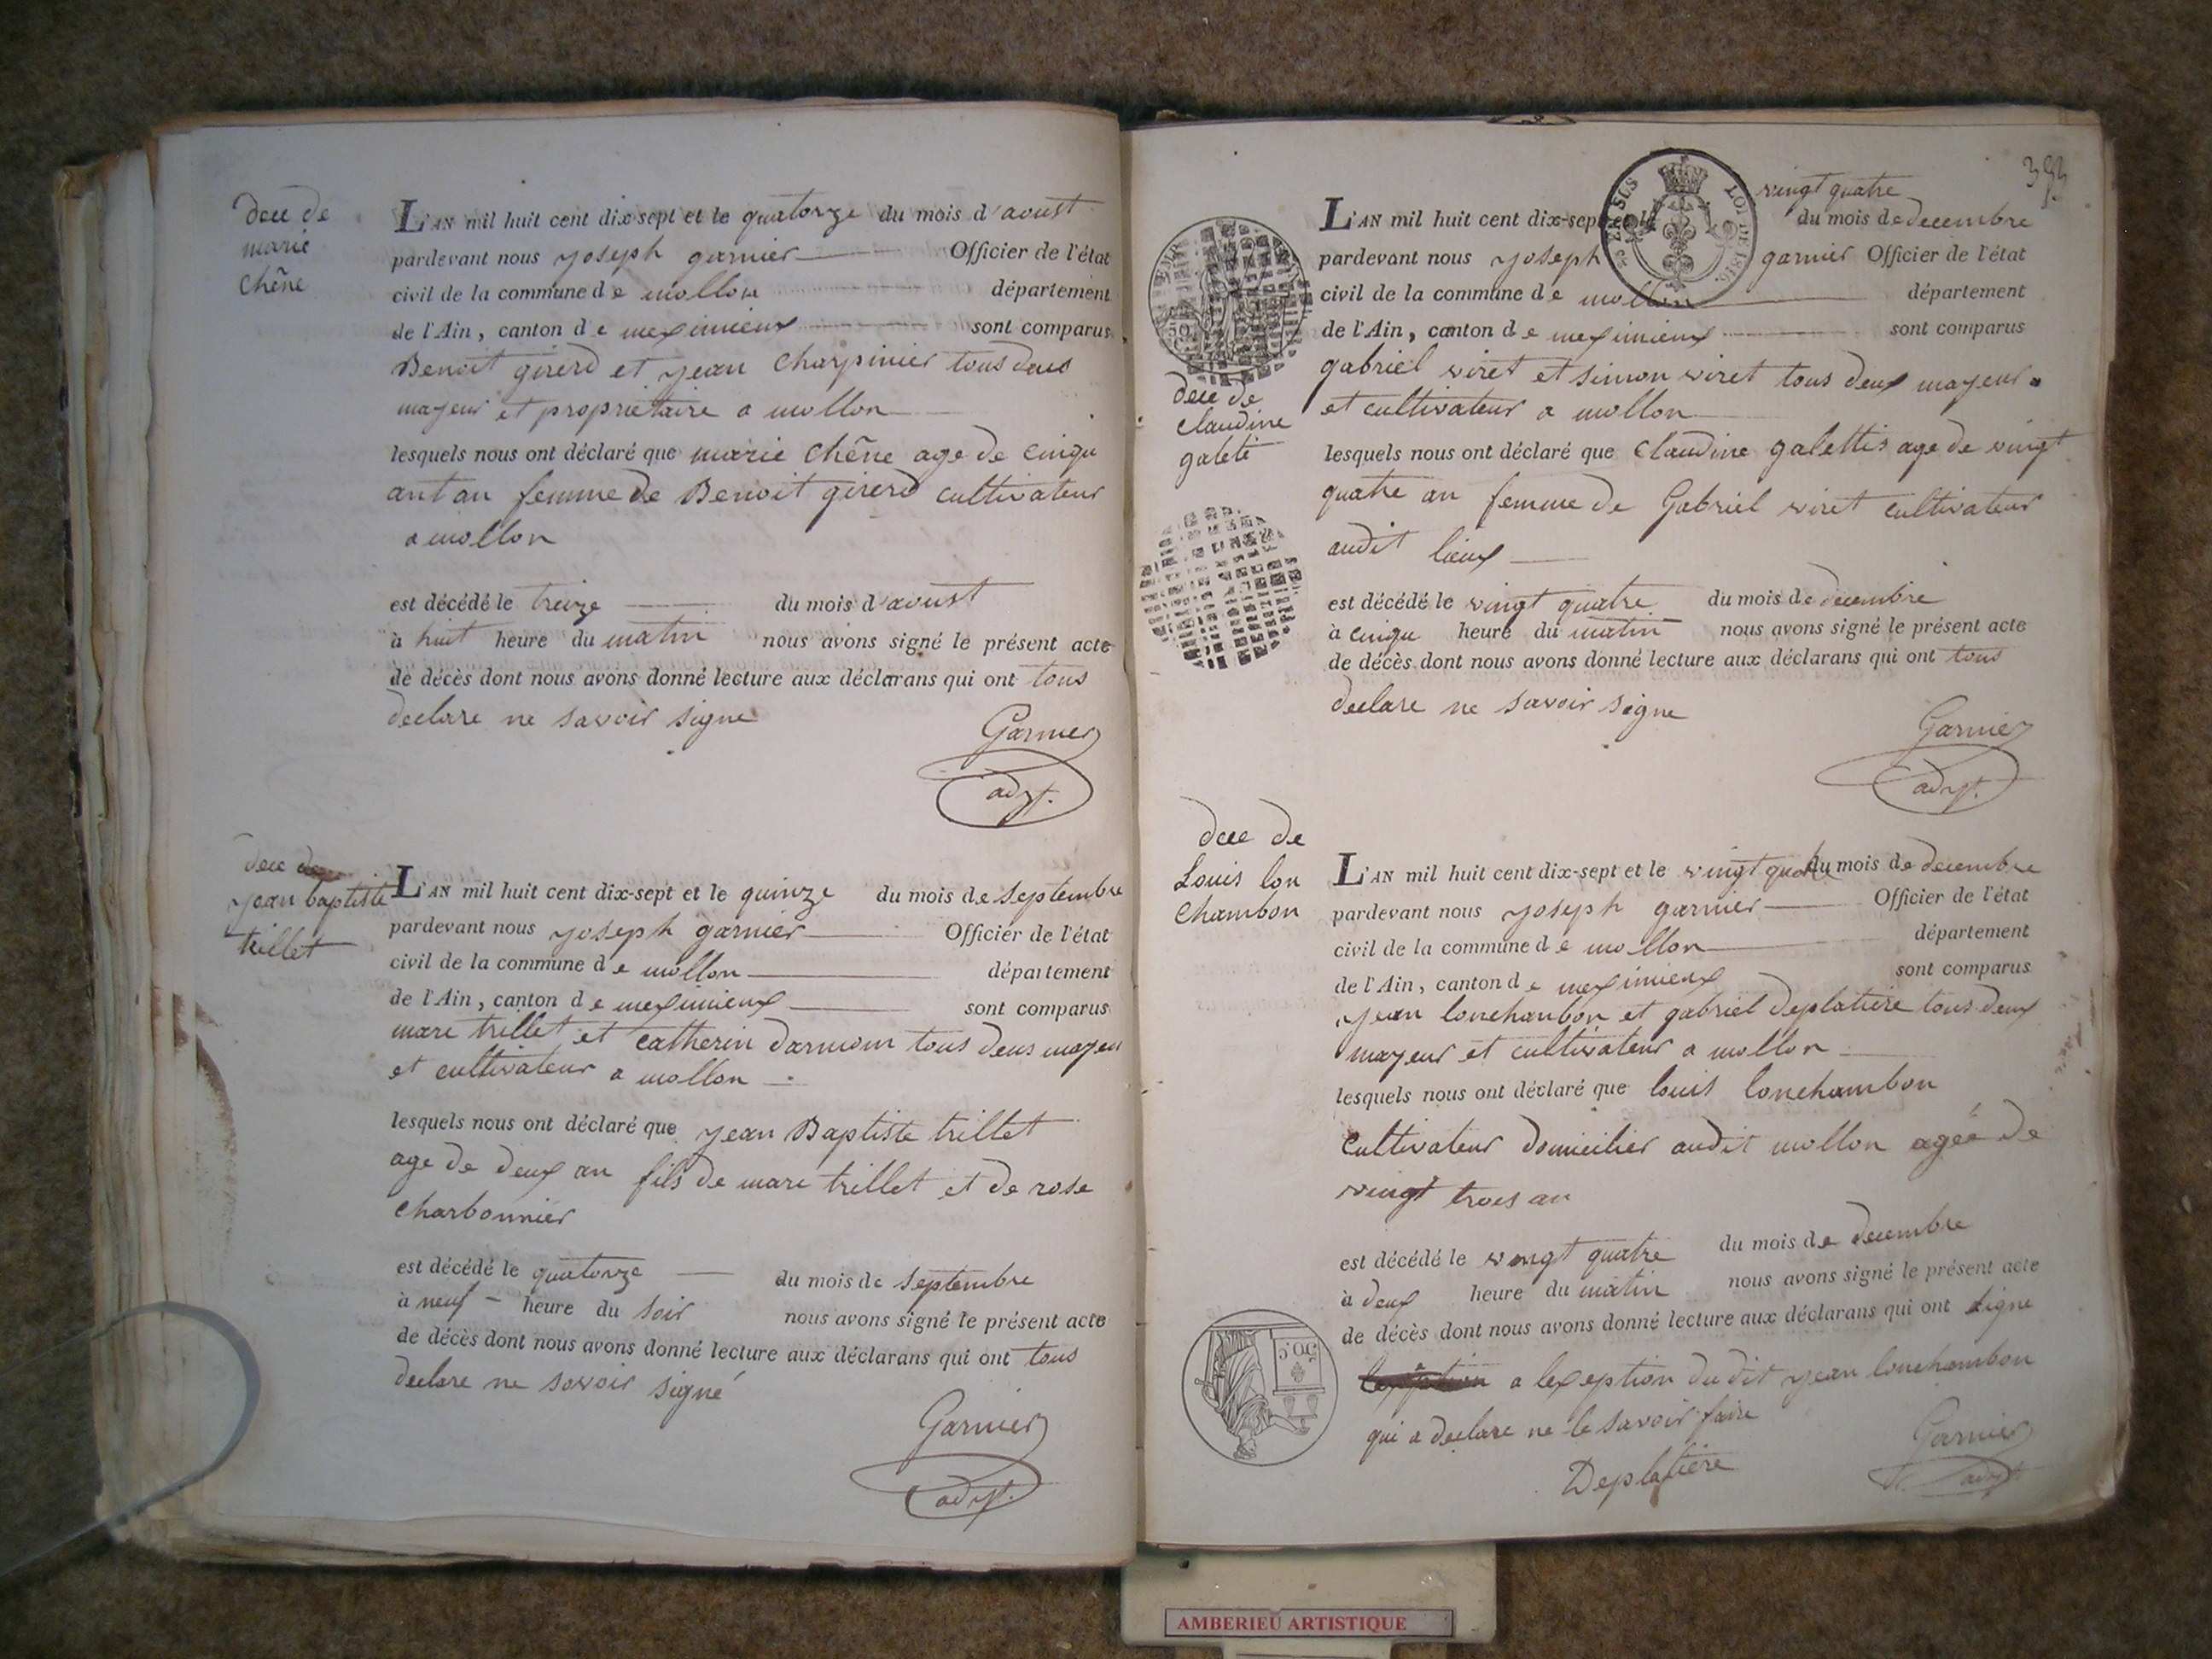 dece de
marie
chêne
L'AN mil huit cent dix-sept et le quatorze du mois d'avust
pardevant nous joseph garnier Officier de l'état
civil de la commune de mollon département
de l'Ain, canton de meximieux sont comparus
Benoit girerd et jean charpinier tous deus
majeur et propriétaire a mollon
lesquels nous ont déclaré que marie chêne age de cinqu
ant an femme de Benoit girerd cultivateur
a mollon
est décédé le treize du mois d'avust
à huit heure du matin nous avons signé le présent acte
de décès dont nous avons donné lecture aux déclarans qui ont tous
declare ne savoir signe
Garnier
adjt.
dece de
jean baptiste
trillet
L'AN mil huit cent dix-sept et le quinze du mois de septembre
pardevant nous joseph garnier Officier de l'état
civil de la commune de mollon département
de l'Ain, canton de meximieux sont comparus
marc trillet et catherin darmom tous deus majeur
et cultivateur a mollon
lesquels nous ont déclaré que jean Baptiste trillet
age de deux an fils de marc trillet et de rose
charbonnier
est décédé le quatorze du mois de septembre
à neuf heure du soir nous avons signé le présent acte
de décès dont nous avons donné lecture aux déclarans qui ont tous
declare ne savoir signé
Garnier
adjt.
393
LOI DE 1816.
dece de
claudine
galeti
L'AN mil huit cent dix-sept et le vingt quatre du mois de decembre
pardevant nous joseph garnier Officier de l'état
civil de la commune de mollon département
de l'Ain, canton de meximieux sont comparus
gabriel viret et simon viret tous deux majeur
et cultivateur a mollon
lesquels nous ont déclaré que claudine galettis age de vingt
quatre an femme de Gabriel viret cultivateur
audit lieux
est décédé le vingt quatre du mois de decembre
à cinqu heure du matin nous avons signé le présent acte
de décès dont nous avons donné lecture aux déclarans qui ont tous
declare ne savoir signe
Garnier
adjt.
dece de
Louis lon
chambon
L'AN mil huit cent dix-sept et le vingt quatre du mois de decembre
pardevant nous joseph garnier Officier de l'état
civil de la commune de mollon département
de l'Ain, canton de meximieux sont comparus
jean lonchanbon et gabriel deplatiere tous deux
majeur et cultivateur a mollon
lesquels nous ont déclaré que louis lonchambon
cultivateur domicilier audit mollon agée de
vingt trois an
est décédé le vingt quatre du mois de decembre
à deux heure du matin nous avons signé le présent acte
de décès dont nous avons donné lecture aux déclarans qui ont signe
a lexeption dudit jean lonchambon
qui a declare ne le savoir faire
Deplatiere
Garnier
adjt.
50 C
AMBERIEU ARTISTIQUE